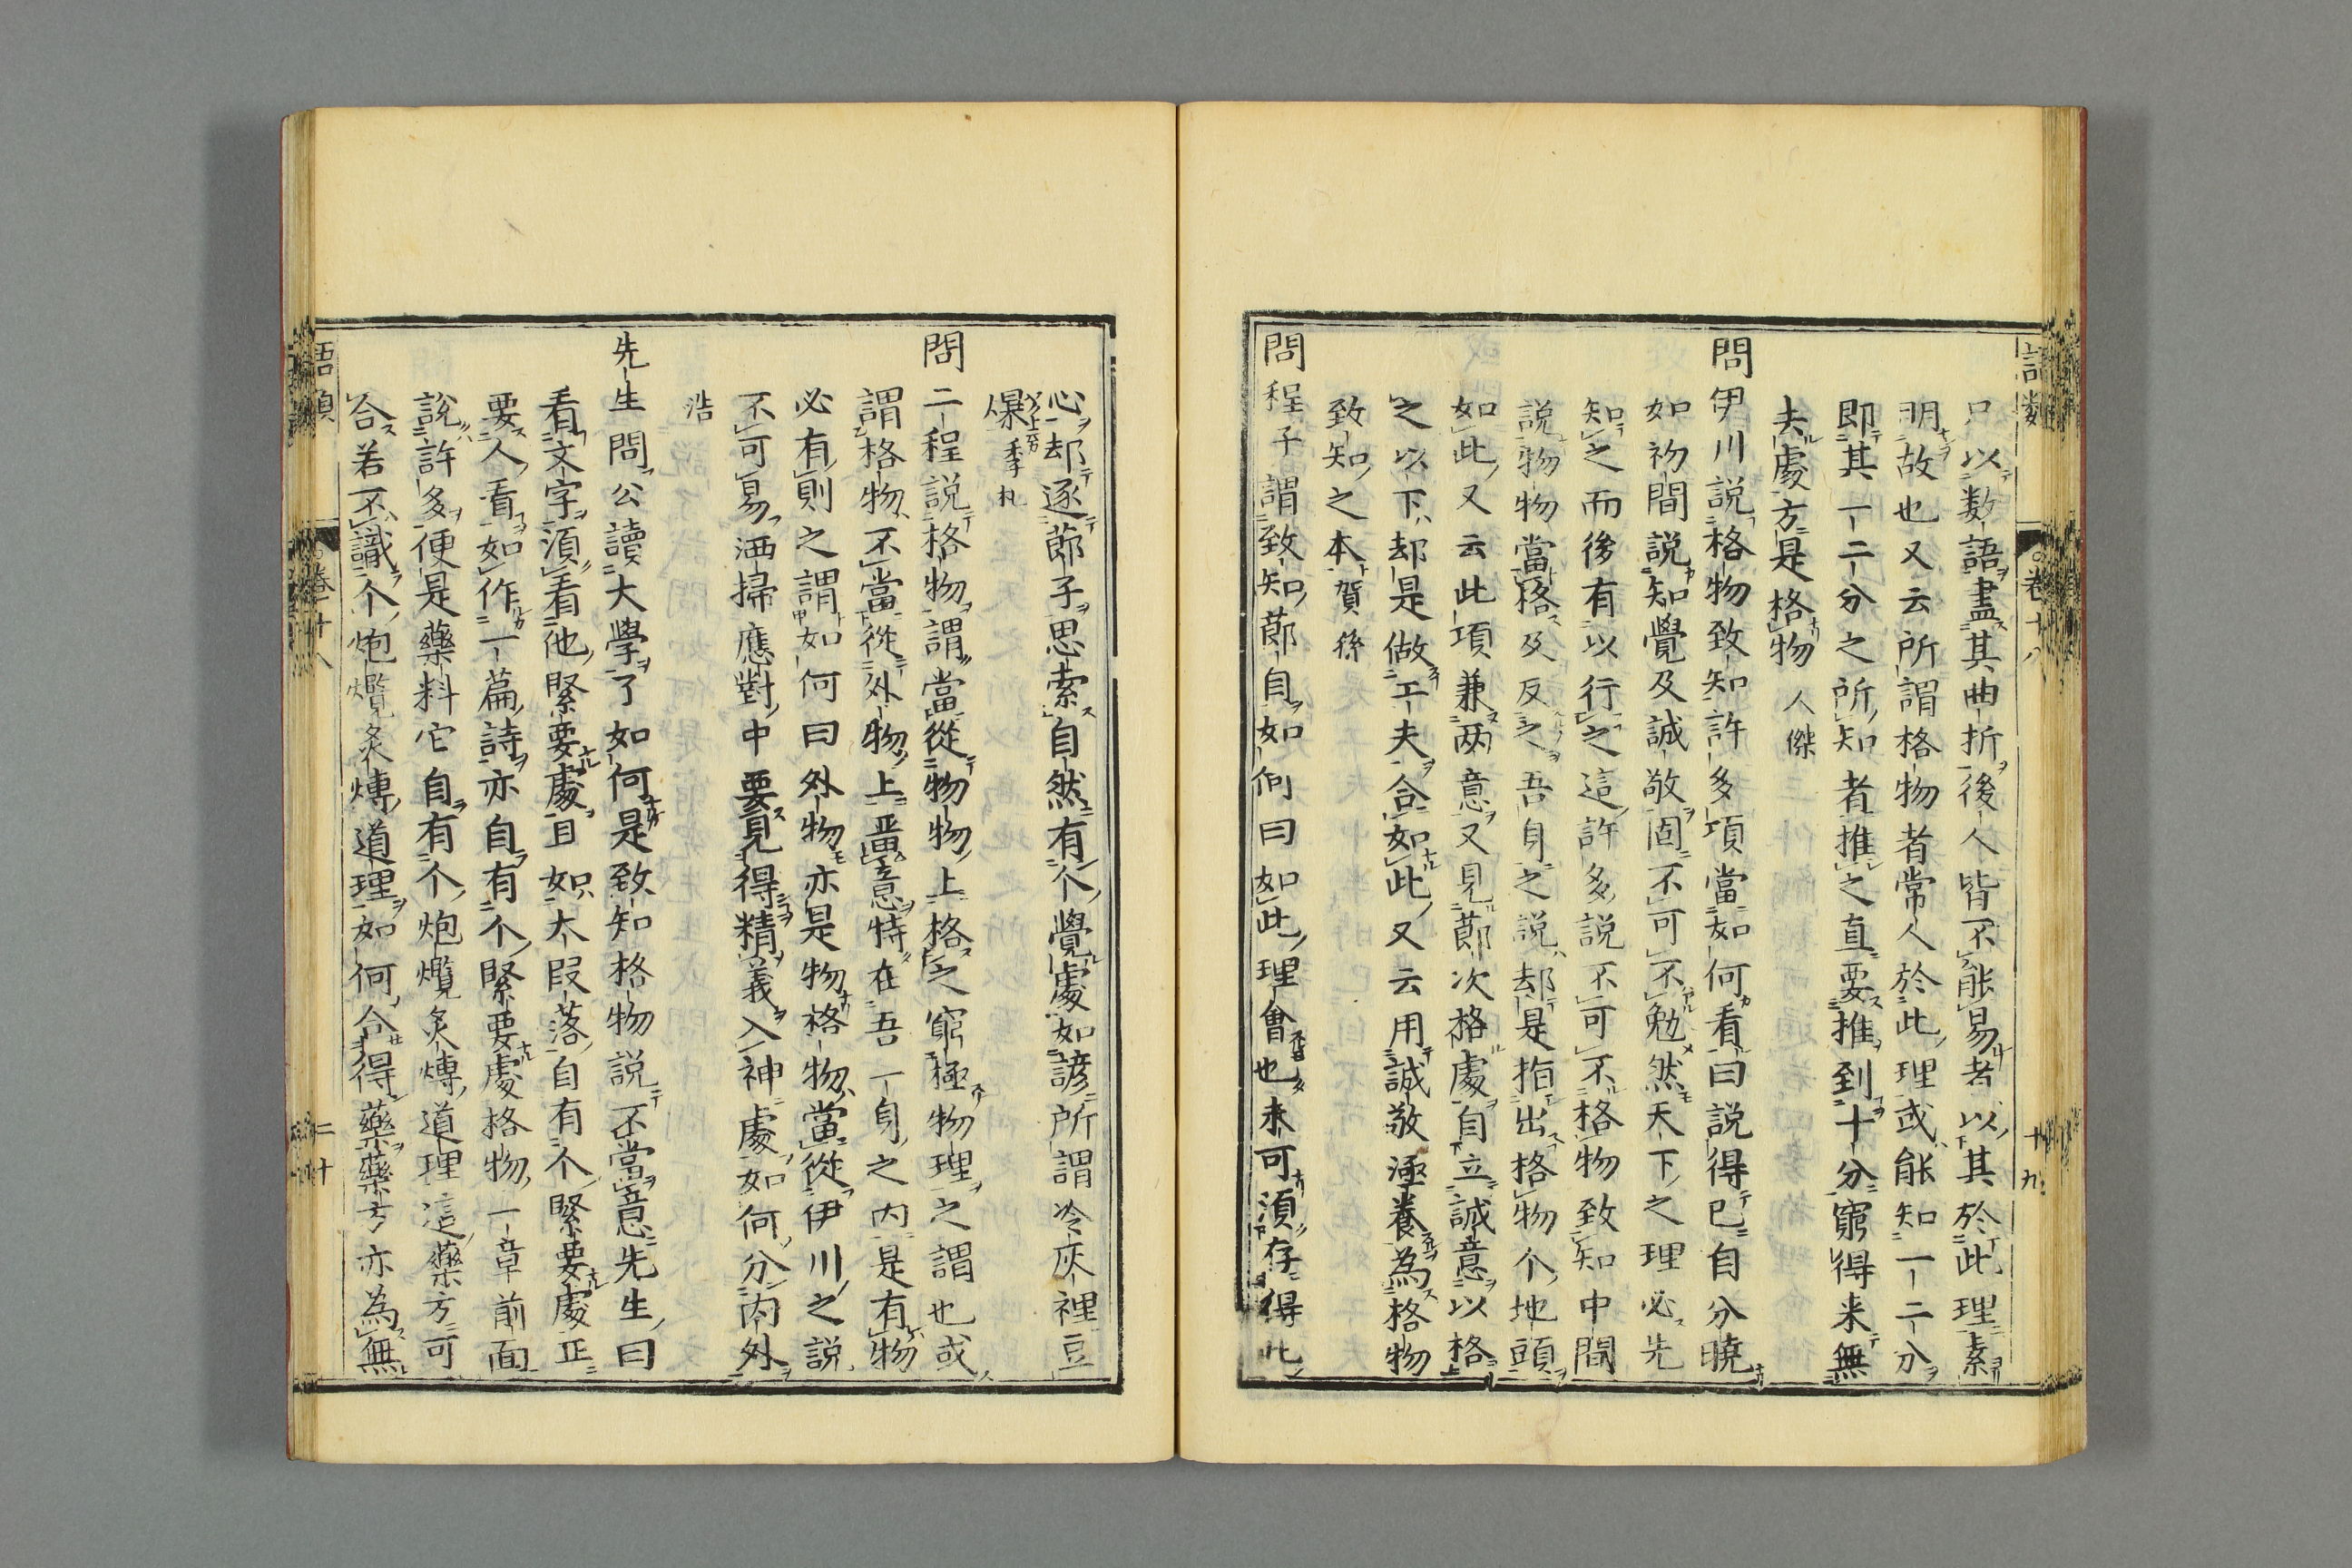 只以数語盡其曲折後人皆不能易者以其於此理素
明故也又云所謂格物者常人於此理或能知一二分
即其一二分之所知者推之直要推到十分窮得来無
去處方是格物 人傑
問伊川説格物致知許多項當如何看曰説得已自分曉
如初間説知覺及誠敬固不可不勉然天下之理必先
知之而後有以行之這許多説不可不格物致知中間
説物物當格及反之吾身之説却是指出格物个地頭
如此又云此項兼两意又見節次格處自立誠意以格
之以下却是做工夫合如此又云用誠敬涵養為格物
致知之本 賀孫
問程子謂致知節自如何曰如此理會也未可須存得此
心却逐節子思索自然有个覺處如諺所謂冷灰裡豆
爆 季札
問二程説格物謂當從物物上格之窮極物理之謂也或
謂格物不當從外物上畱意特在吾一身之内是有物
必有則之謂如何曰外物亦是物格物當從伊川之説
不可易洒掃應對中要見得精義入神處如何分内外
浩
先生問公讀大學了如何是致知格物説不當意先生曰
看文字須看他緊要處且如大段落自有个緊要處正
要人看如作一篇詩亦自有个緊要處格物一章前面
說許多便是藥料它自有个炮爁炙煿道理這藥方可
合若不識个炮爁炙煿道理如何合得藥藥方亦為無
語類
卷十八
十九
語類
卷十八
二十